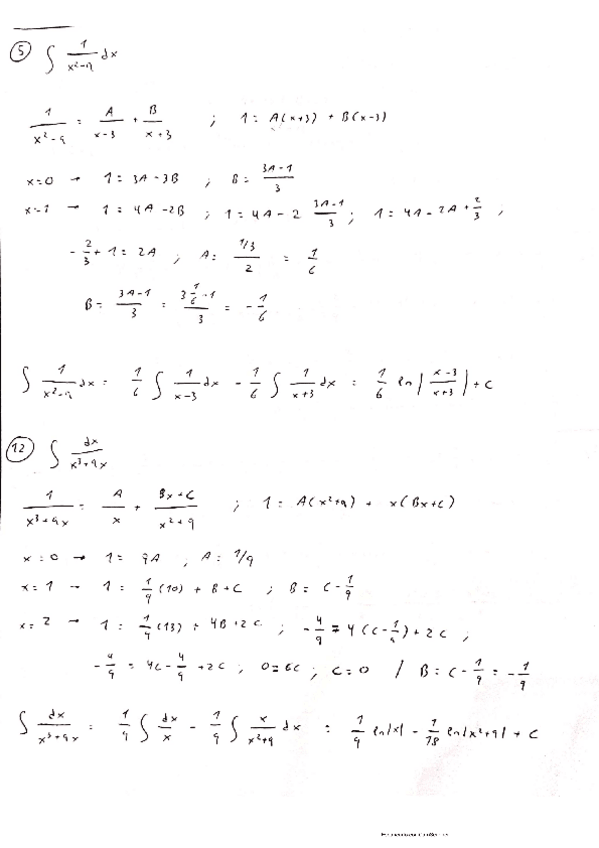 5 ∫ 1/(x²-9) dx
1/(x²-9) = A/(x-3) + B/(x+3) ; 1 = A(x+3) + B(x-3)
x=0 → 1 = 3A-3B ; B = (3A-1)/3
x=1 → 1 = 4A-2B ; 1 = 4A - 2 (3A-1)/3 ; 1 = 4A-2A+2/3 ;
-2/3 + 1 = 2A ; A = (1/3)/2 = 1/6
B = (3A-1)/3 = (3 1/6 -1)/3 = -1/6
∫ 1/(x²-9) dx = 1/6 ∫ 1/(x-3) dx - 1/6 ∫ 1/(x+3) dx = 1/6 ln|(x-3)/(x+3)| + C
12 ∫ dx/(x³+9x)
1/(x³+9x) = A/x + (Bx+C)/(x²+9) ; 1 = A(x²+9) + x(Bx+C)
x=0 → 1 = 9A ; A = 1/9
x=1 → 1 = 1/9 (10) + B+C ; B = C-1/9
x=2 → 1 = 1/9 (13) + 4B+2C ; -4/9 = 4(C-1/9) + 2C ;
-4/9 = 4C-4/9 +2C ; 0=6C ; C=0 / B = C-1/9 = -1/9
∫ dx/(x³+9x) = 1/9 ∫ dx/x - 1/9 ∫ x/(x²+9) dx = 1/9 ln|x| - 1/18 ln|x²+9| + C